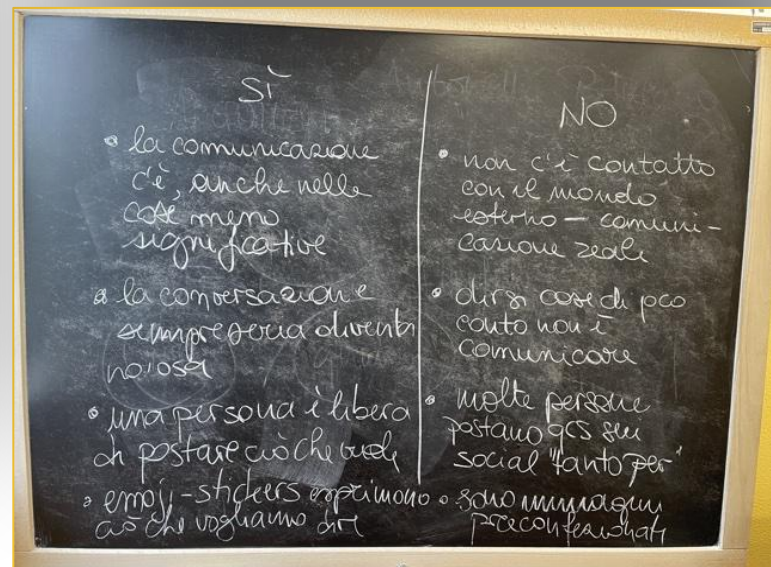 SÌ
• la comunicazione
c'è, anche nelle
cose meno
significative
• la conversazione
sempre seria diventa
noiosa
• una persona è libera
di postare ciò che vuole
• emoji - stickers esprimono
ciò che vogliamo dire
NO
• non c'è contatto
con il mondo
esterno – comuni-
cazione reale
• dirsi cose di poco
conto non è
comunicare
• molte persone
postano qcs sui
social "tanto per"
• sono immagini
preconfezionati